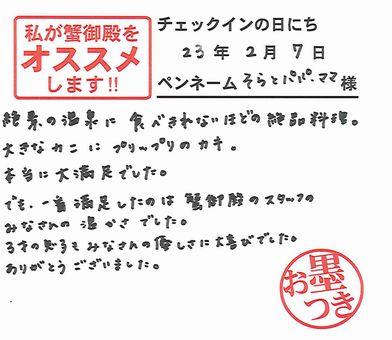 私が蟹御殿を
オススメ
します!!
チェックインの日にち
23年 2月 7日
ペンネーム そらとパパ、ママ 様
絶景の温泉に 食べきれないほどの絶品料理。
大きなカニに プリップリのカキ。
本当に大満足でした。
でも、一番満足したのは 蟹御殿のスタッフの
みなさんの 温かさ でした。
3才の息子もみなさんの優しさに大喜びでした。
ありがとう ございました。
お墨
つき